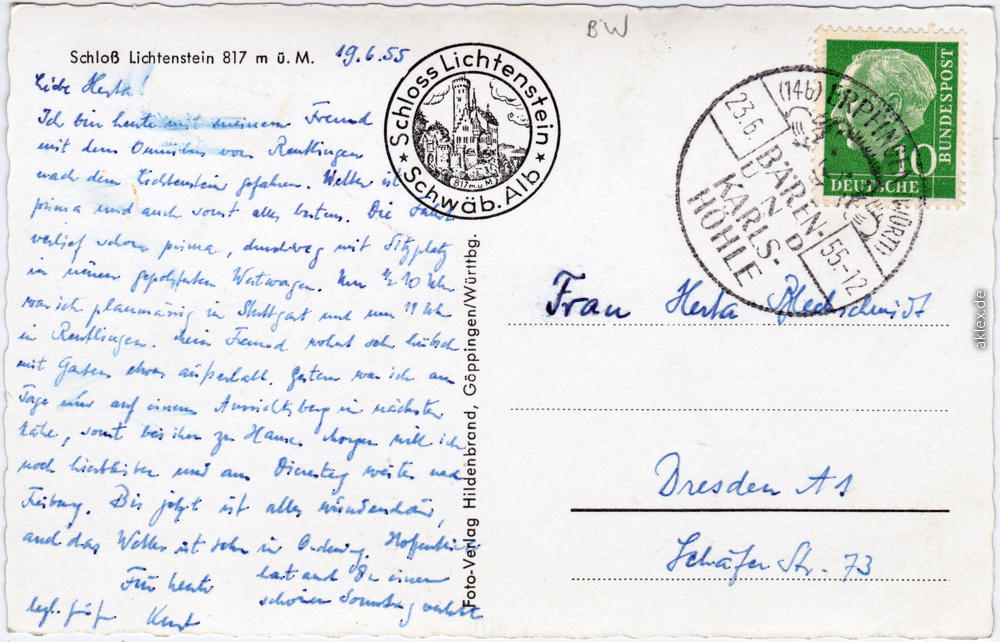 BW
Schloß Lichtenstein 817 m ü. M.
19.6.55
Schloss Lichtenstein
817 m ü M
Schwäb. Alb
Liebe Herta!
Ich bin heute mit meinem Freund
mit dem Omnibus von Reutlingen
nach dem Lichtenstein gefahren. Wetter ist
prima und auch sonst alles bestens. Die
verlief schon prima, durchweg mit Sitzplatz
im neuen gepolsterten Westwagen. Um ½ 10 Uhr
war ich planmässig in Stuttgart und um 11 Uhr
in Reutlingen. Mein Freund wohnt sehr hübsch
mit Garten etwas außerhalb. Gestern war ich am
Tage nur auf einem Aussichtsberg in nächster
Nähe, sonst bei ihm zu Hause. Morgen will ich
noch hierbleiben und am Dienstag weiter nach
Freiburg. Bis jetzt ist alles wunderschön,
und das Wetter ist sehr in Ordnung. Hoffentlich
hast auch Du einen
schönen Sonntag verlebt
Für heute
Kurt
Foto-Verlag Hildenbrand, Göppingen/Württbg.
(14b) ERPFINGEN (WÜRTT)
23.6.
55.-12
BÄREN-
UND
KARLS-
HÖHLE
10
DEUTSCHE
BUNDESPOST
Frau Herta Blechschmidt
Dresden A1
Schäfer Str. 73
aklex.de